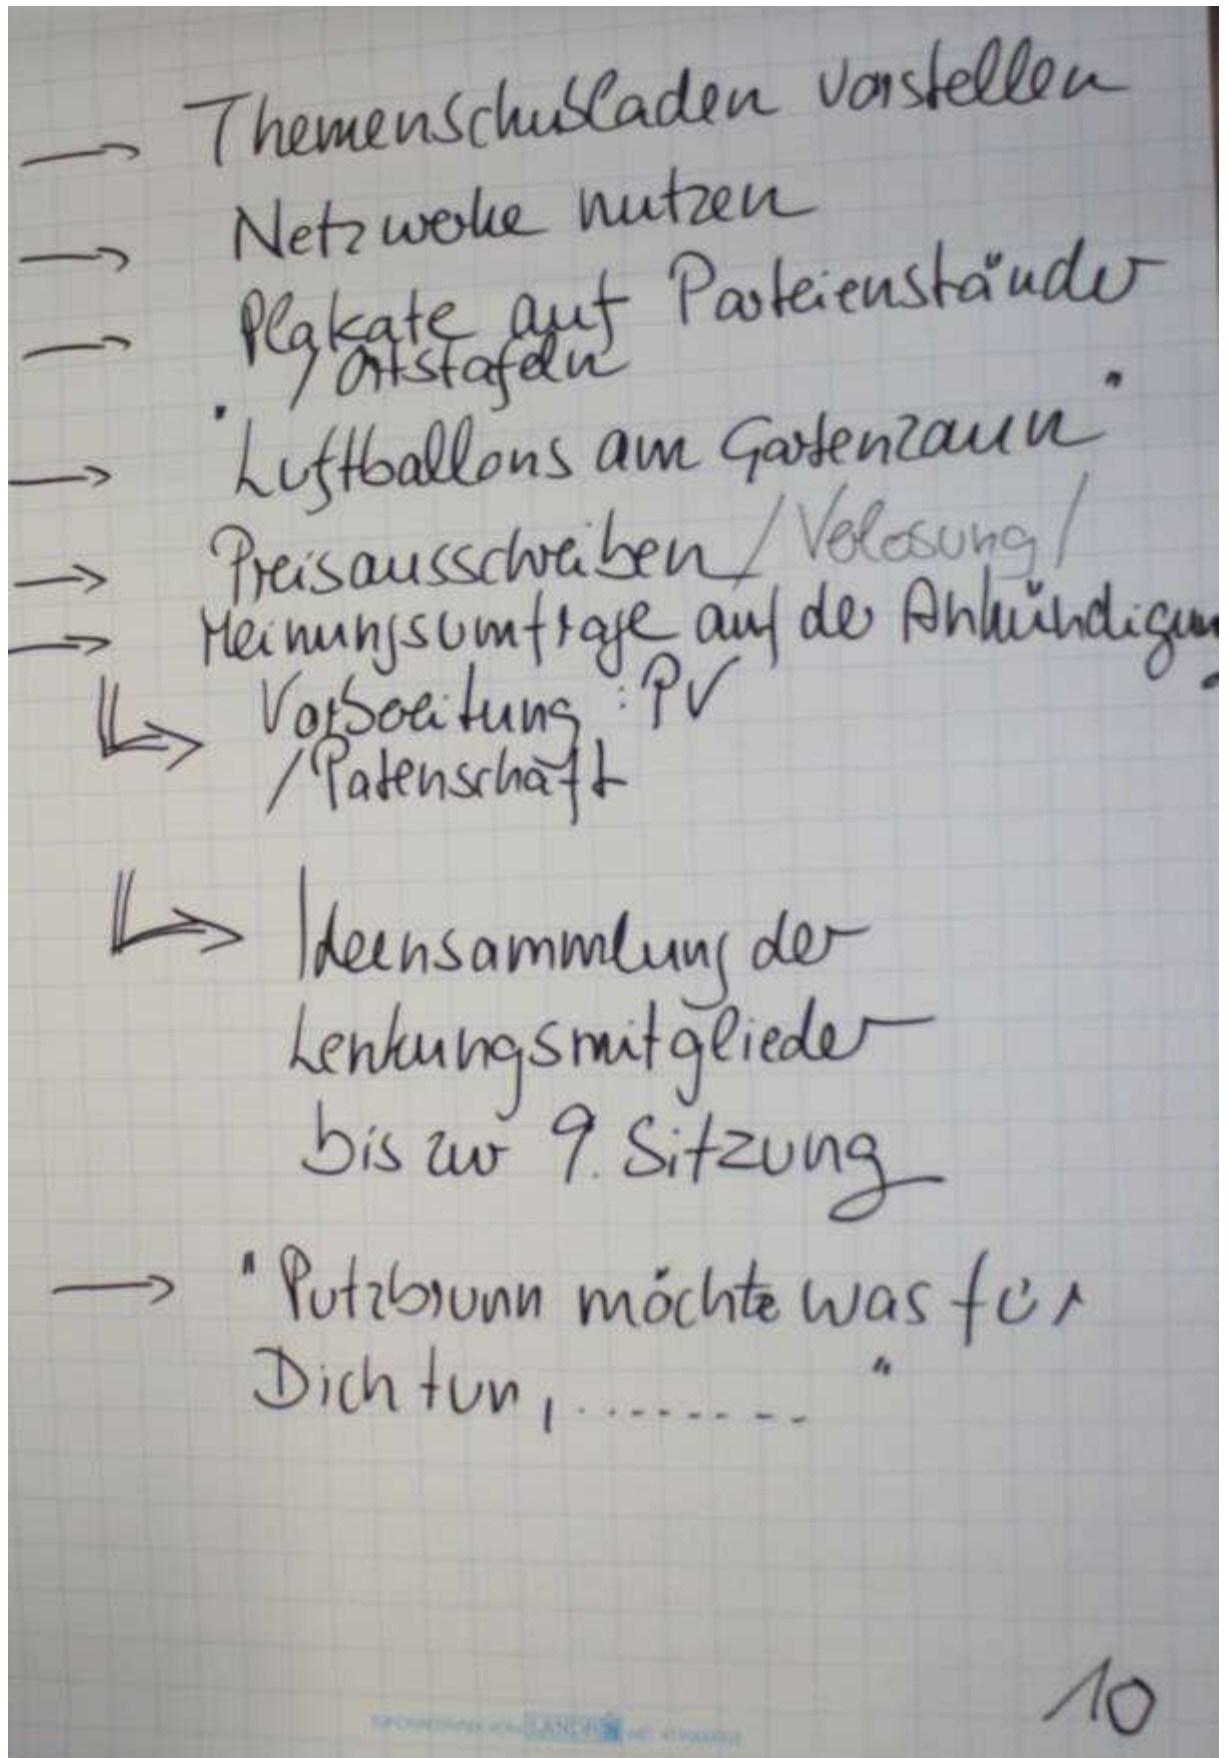 → Themenschubladen vorstellen
→ Netzwerke nutzen
→ Plakate auf Parteienständer
/ Ortstafeln
→ "Luftballons am Gartenzaun"
→ Preisausschreiben / Verlosung /
→ Meinungsumfrage auf der Ankündigung
Vorbereitung : PV
/ Patenschaft
Ideensammlung der
Lenkungsmitglieder
bis zur 9. Sitzung
→ "Putzbrunn möchte was für
Dich tun, ........ "
10